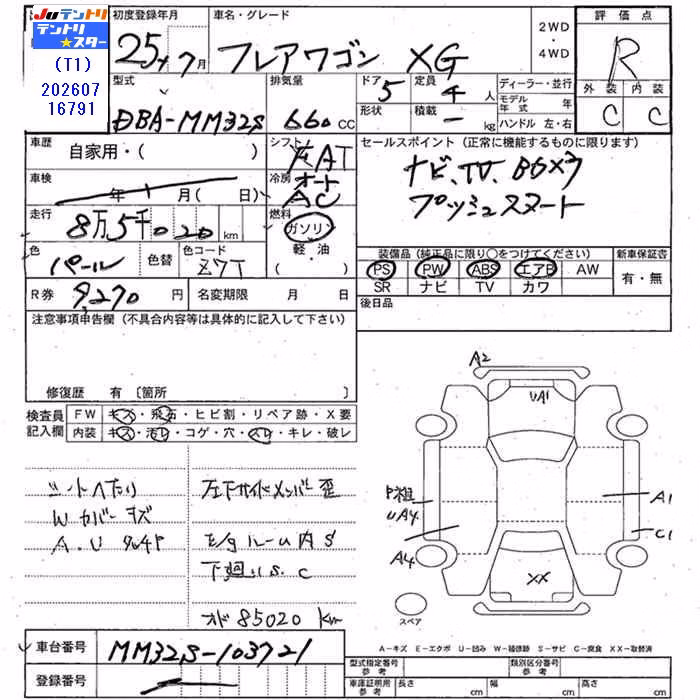 Juテントリ
テントリ★スター
(T1)
202607
16791
初度登録年月
25年7月
車名・グレード
フレアワゴン XG
2WD
・
4WD
評価点
R
外装 内装
C C
型式
DBA-MM32S
排気量
660cc
ドア
5
形状
定員
4人
積載
- kg
ディーラー・並行
モデル年式 年
ハンドル 左・右
車歴
自家用・( )
シフト
FAT
セールスポイント (正常に機能するものに限ります)
ナビ、TV、
プッシュスタート
車検
年 月(日)
冷房
オート
AC
走行
8万5千020km
燃料
ガソリン
軽・油
( )
色
パール
色替
色コード
Z7T
装備品(純正品に限り○をつけてください)
PS PW ABS エアB AW
SR ナビ TV カワ
新車保証書
有・無
R券 9,270円
名変期限 月 日
後日品
注意事項申告欄(不具合内容等は具体的に記入して下さい)
修復歴 有〔箇所 〕
検査員記入欄
FW キズ・飛石・ヒビ割・リペア跡・X要
内装 キズ・汚れ・コゲ・穴・スレ・キレ・破レ
シートヘたり
W カバー キズ
左下サイドメンバー歪
E/gルーム内S
下廻りS.C
オド 85020 Km
A2
UA1
UA4
A4
A1
C1
XX
スペア
A-キズ E-エクボ U-凹み W-補修跡 S-サビ C-腐食 XX-取替済
車台番号
MM32S-103721
登録番号
型式指定番号
参考
類別区分番号
参考
車庫証明用
参考
長さ cm
幅 cm
高さ cm